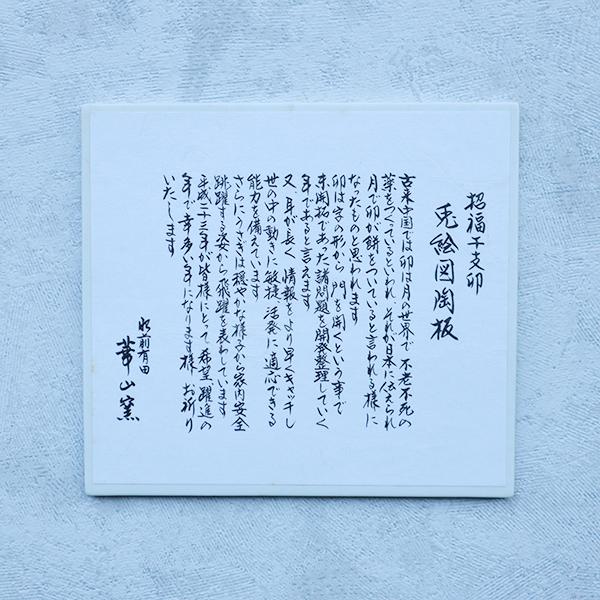 招福干支卯
兎絵図陶板
古来中国では卯は月の世界で不老不死の
薬をつくているといわれ それが日本に伝えられ
月で卯が餅をついていると言われる様に
なったものと思われます
卯は字の形から 門を開くという事で
未開拓であった諸問題を開発整理していく
年であると言えます
又、耳が長く 情報をより早くキャッチし
世の中の動きに敏捷 活発に適応できる
能力を備えています
さらに、うさぎは穏やかな様子から家内安全
跳躍する姿から飛躍を表わしています
平成二十三年が皆様にとって 希望躍進の
年で幸多い年になります様 お祈り
いたします
肥前有田
華山窯